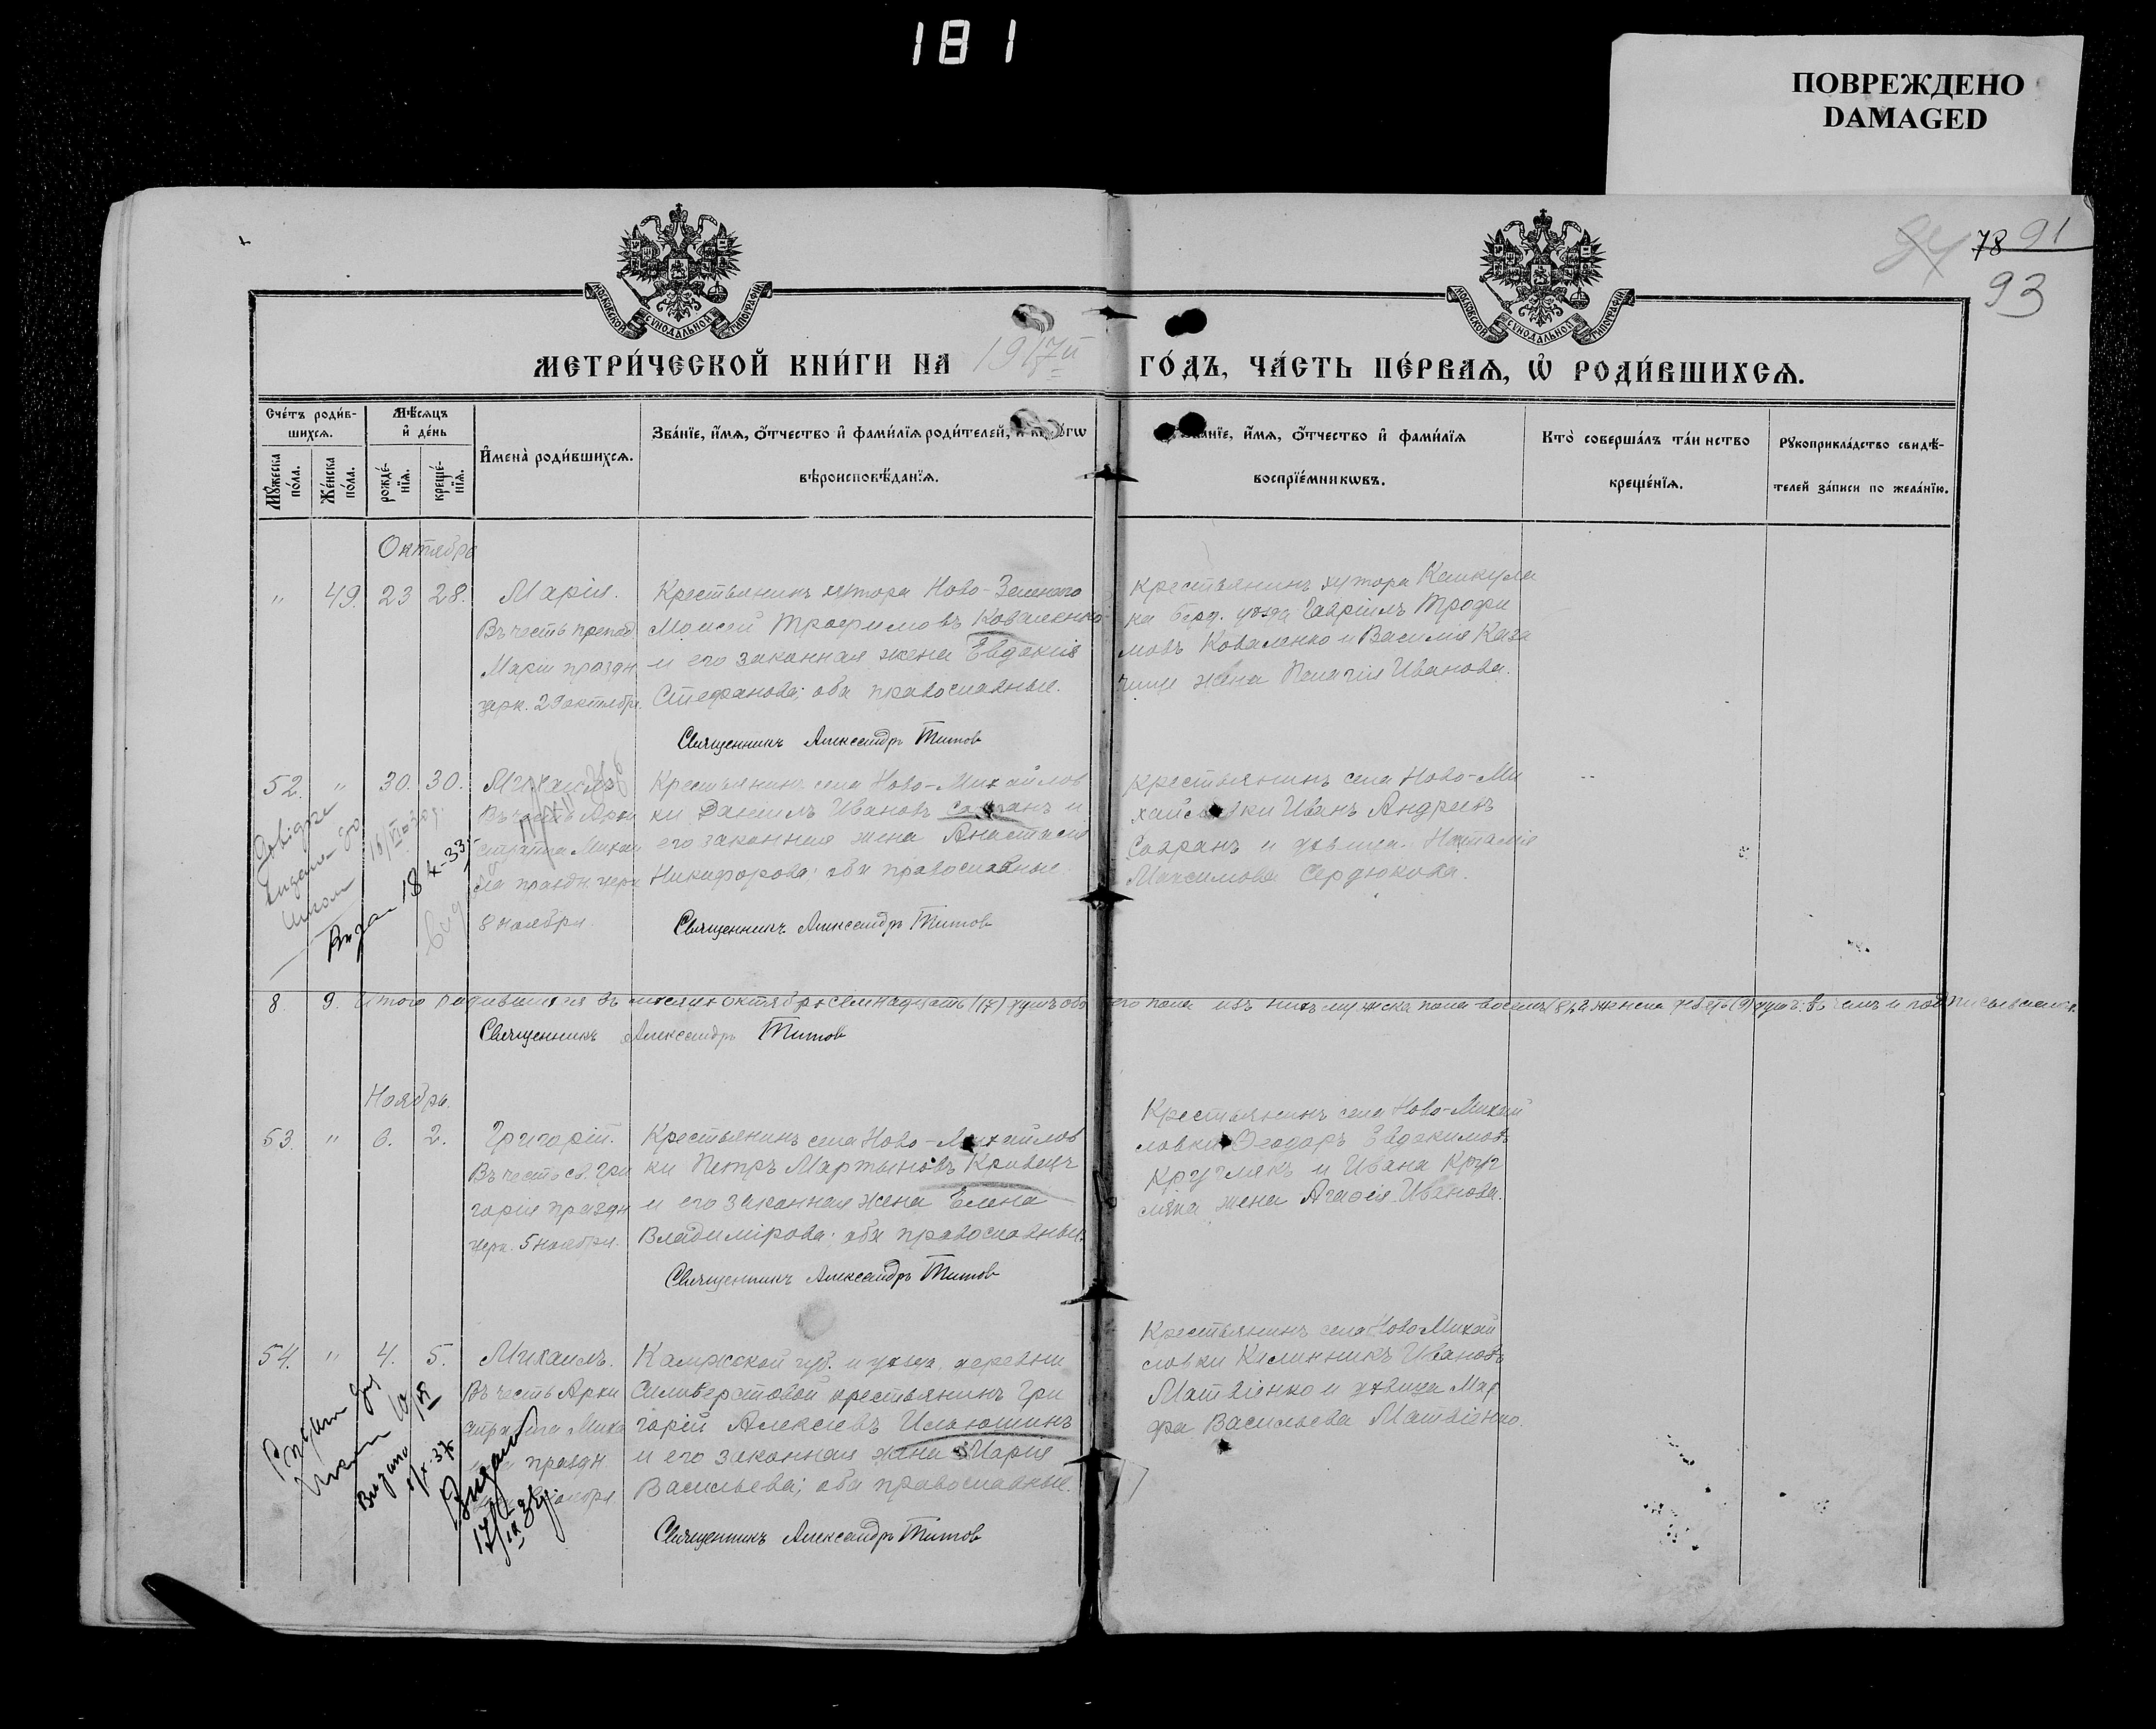 181
ПОВРЕЖДЕНО
DAMAGED
78 91
93
МОСКОВСКОЙ СУНОДАЛЬНОЙ ТИПОГРАФІИ
МОСКОВСКОЙ СУНОДАЛЬНОЙ ТИПОГРАФІИ
МЕТРИ́ЧЕСКОЙ КНИ́ГИ НА 1917й ГО́ДЪ, ЧА́СТЬ ПЕ́РВАѦ, Ѡ҆ РОДИ́ВШИХСѦ.
Сче́тъ роди́в-
шихсѧ.
Мѣ́сѧцъ
и҆ де́нь
Мꙋ́жеска по́ла.
Же́нска по́ла.
рожде́-
нїѧ.
креще́-
нїѧ.
И҆мена̀ роди́вшихсѧ.
Зва́нїе, и҆́мѧ, ѻ҆́тчество и҆ фами́лїѧ роди́телей,
вѣроисповѣ́данїѧ.
и҆́мѧ, ѻ҆́тчество и҆ фами́лїѧ
воспрїе́мникѡвъ.
Кто̀ соверша́лъ та́инство
креще́нїѧ.
Рꙋкоприкла́дство свидѣ́-
телей за́писи по жела́нїю.
Октябрь
" 49. 23 28. Марія.
Въ честь препод.
Маріи праздн.
церк. 29 октября.
Крестьянинъ хутора Ново-Зеленаго
Моисей Трофимовъ Коваленко
и его законная жена Евдокія
Стефанова; оба православные.
Священникъ Александръ Титов
Крестьянинъ хутора
ка берд. уѣзда Гавріилъ Трофи
мовъ Коваленко и Василія Каза
жена Пелагія Иванова.
52. " 30. 30. Михаилъ
Въ честь Архи
стратига Михаи
ла праздн. церк
8 ноября.
Крестьянинъ села Ново-Михайлов
ки Даніилъ Ивановъ Савранъ и
его законная жена Анастасія
Никифорова; оба православные.
Священникъ Александръ Титов
Крестьянинъ села Ново-Ми
хайловки Иванъ Андреевъ
Савранъ и дѣвица Наталія
Максимова Сердюкова.
18 X-33
8 9. Итого родившихся въ мѣсяцѣ октябрѣ семнадцать (17) душъ обоего пола изъ нихъ мужска пола восемь (8) а женска девять (9) душъ: въ чемъ и подписываемся.
Священникъ Александръ Титов
Ноябрь.
53. " 6. 2. Григорій.
Въ честь св. Гри
горія праздн
церк. 5 ноября.
Крестьянинъ села Ново-Михайлов
ки Петръ Мартыновъ Кривецъ
и его законная жена Елена
Владимірова; оба православные.
Священникъ Александръ Титов
Крестьянинъ села Ново-Михай
ловки Ѳеодоръ Евдокимовъ
Круглякъ и Ивана Круг
ляка жена Агаѳія Иванова.
54. " 4. 5. Михаилъ.
Въ честь Архи
стратига Миха
ила праздн.
ноября.
Калужской губ. и уѣзда, деревни
Селиверстовой крестьянинъ Гри
горій Алексіевъ Илюшинъ
и его законная жена Марія
Васильева; оба православные.
Священникъ Александръ Титов
Крестьянинъ села Ново Михай
ловки Калинникъ Ивановъ
Матвіенко и дѣвица Мар
фа Васильева Матвіенко.
Видано
Видано
17/IX